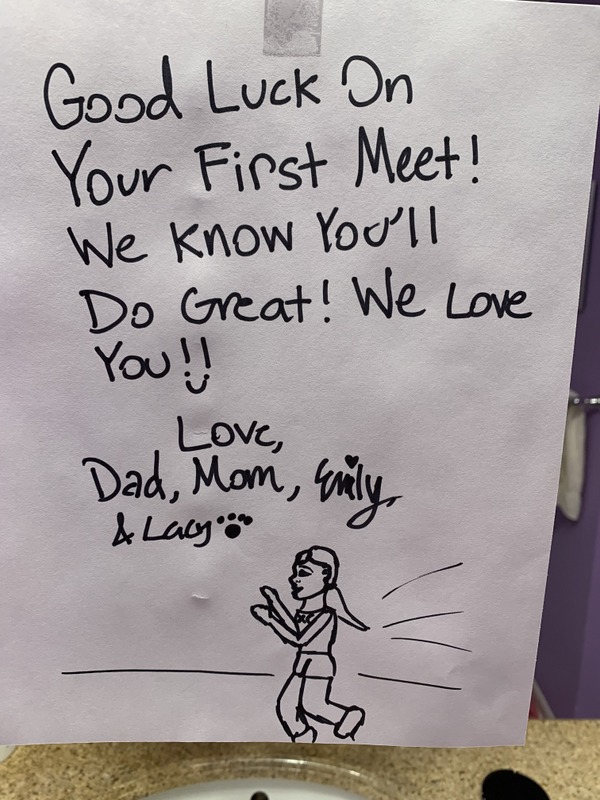 Good Luck On
Your First Meet!
We Know You'll
Do Great! We Love
You!!
Love,
Dad, Mom, Emily,
& Lacy